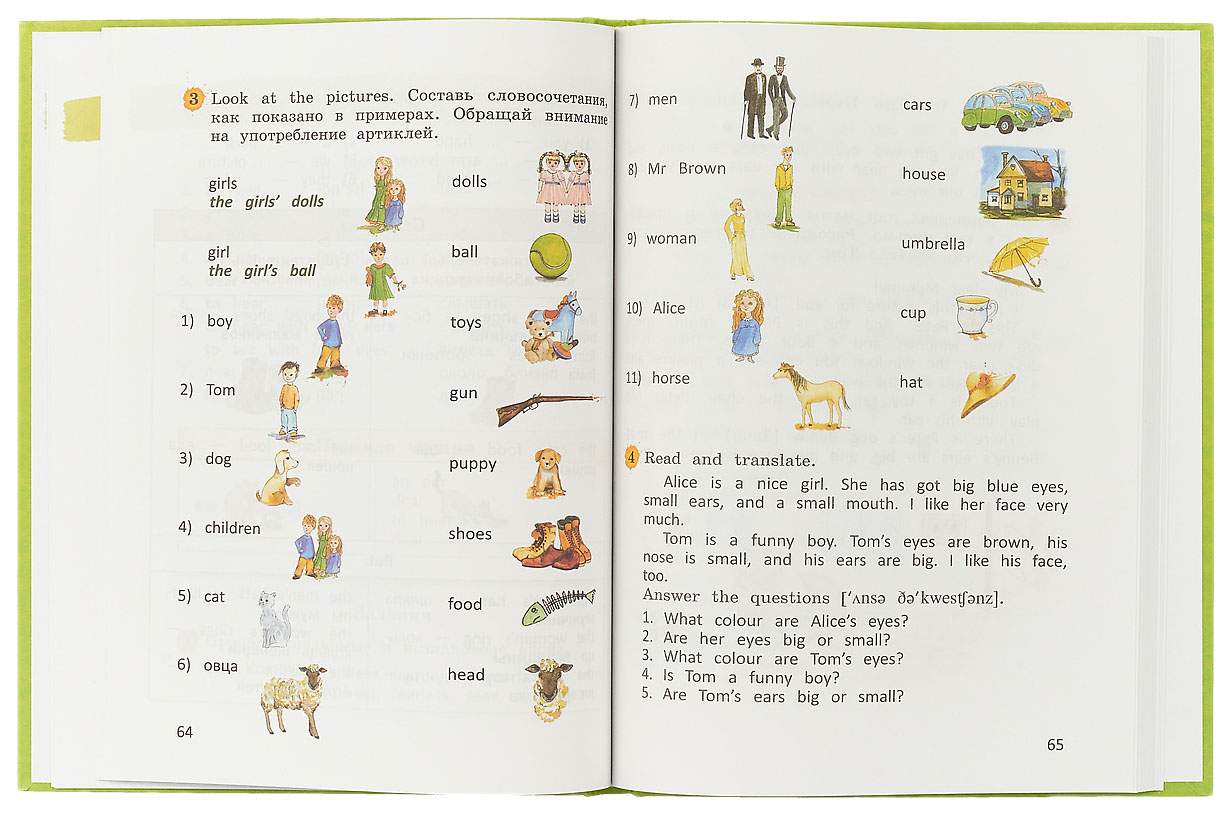 3 Look at the pictures. Составь словосочетания,
как показано в примерах. Обращай внимание
на употребление артиклей.
girls dolls
the girls' dolls
girl ball
the girl's ball
1) boy toys
2) Tom gun
3) dog puppy
4) children shoes
5) cat food
6) овца head
64
7) men cars
8) Mr Brown house
9) woman umbrella
10) Alice cup
11) horse hat
4 Read and translate.
Alice is a nice girl. She has got big blue eyes,
small ears, and a small mouth. I like her face very
much.
Tom is a funny boy. Tom's eyes are brown, his
nose is small, and his ears are big. I like his face,
too.
Answer the questions [ˈʌnsə ðəˈkwestʃənz].
1. What colour are Alice's eyes?
2. Are her eyes big or small?
3. What colour are Tom's eyes?
4. Is Tom a funny boy?
5. Are Tom's ears big or small?
65